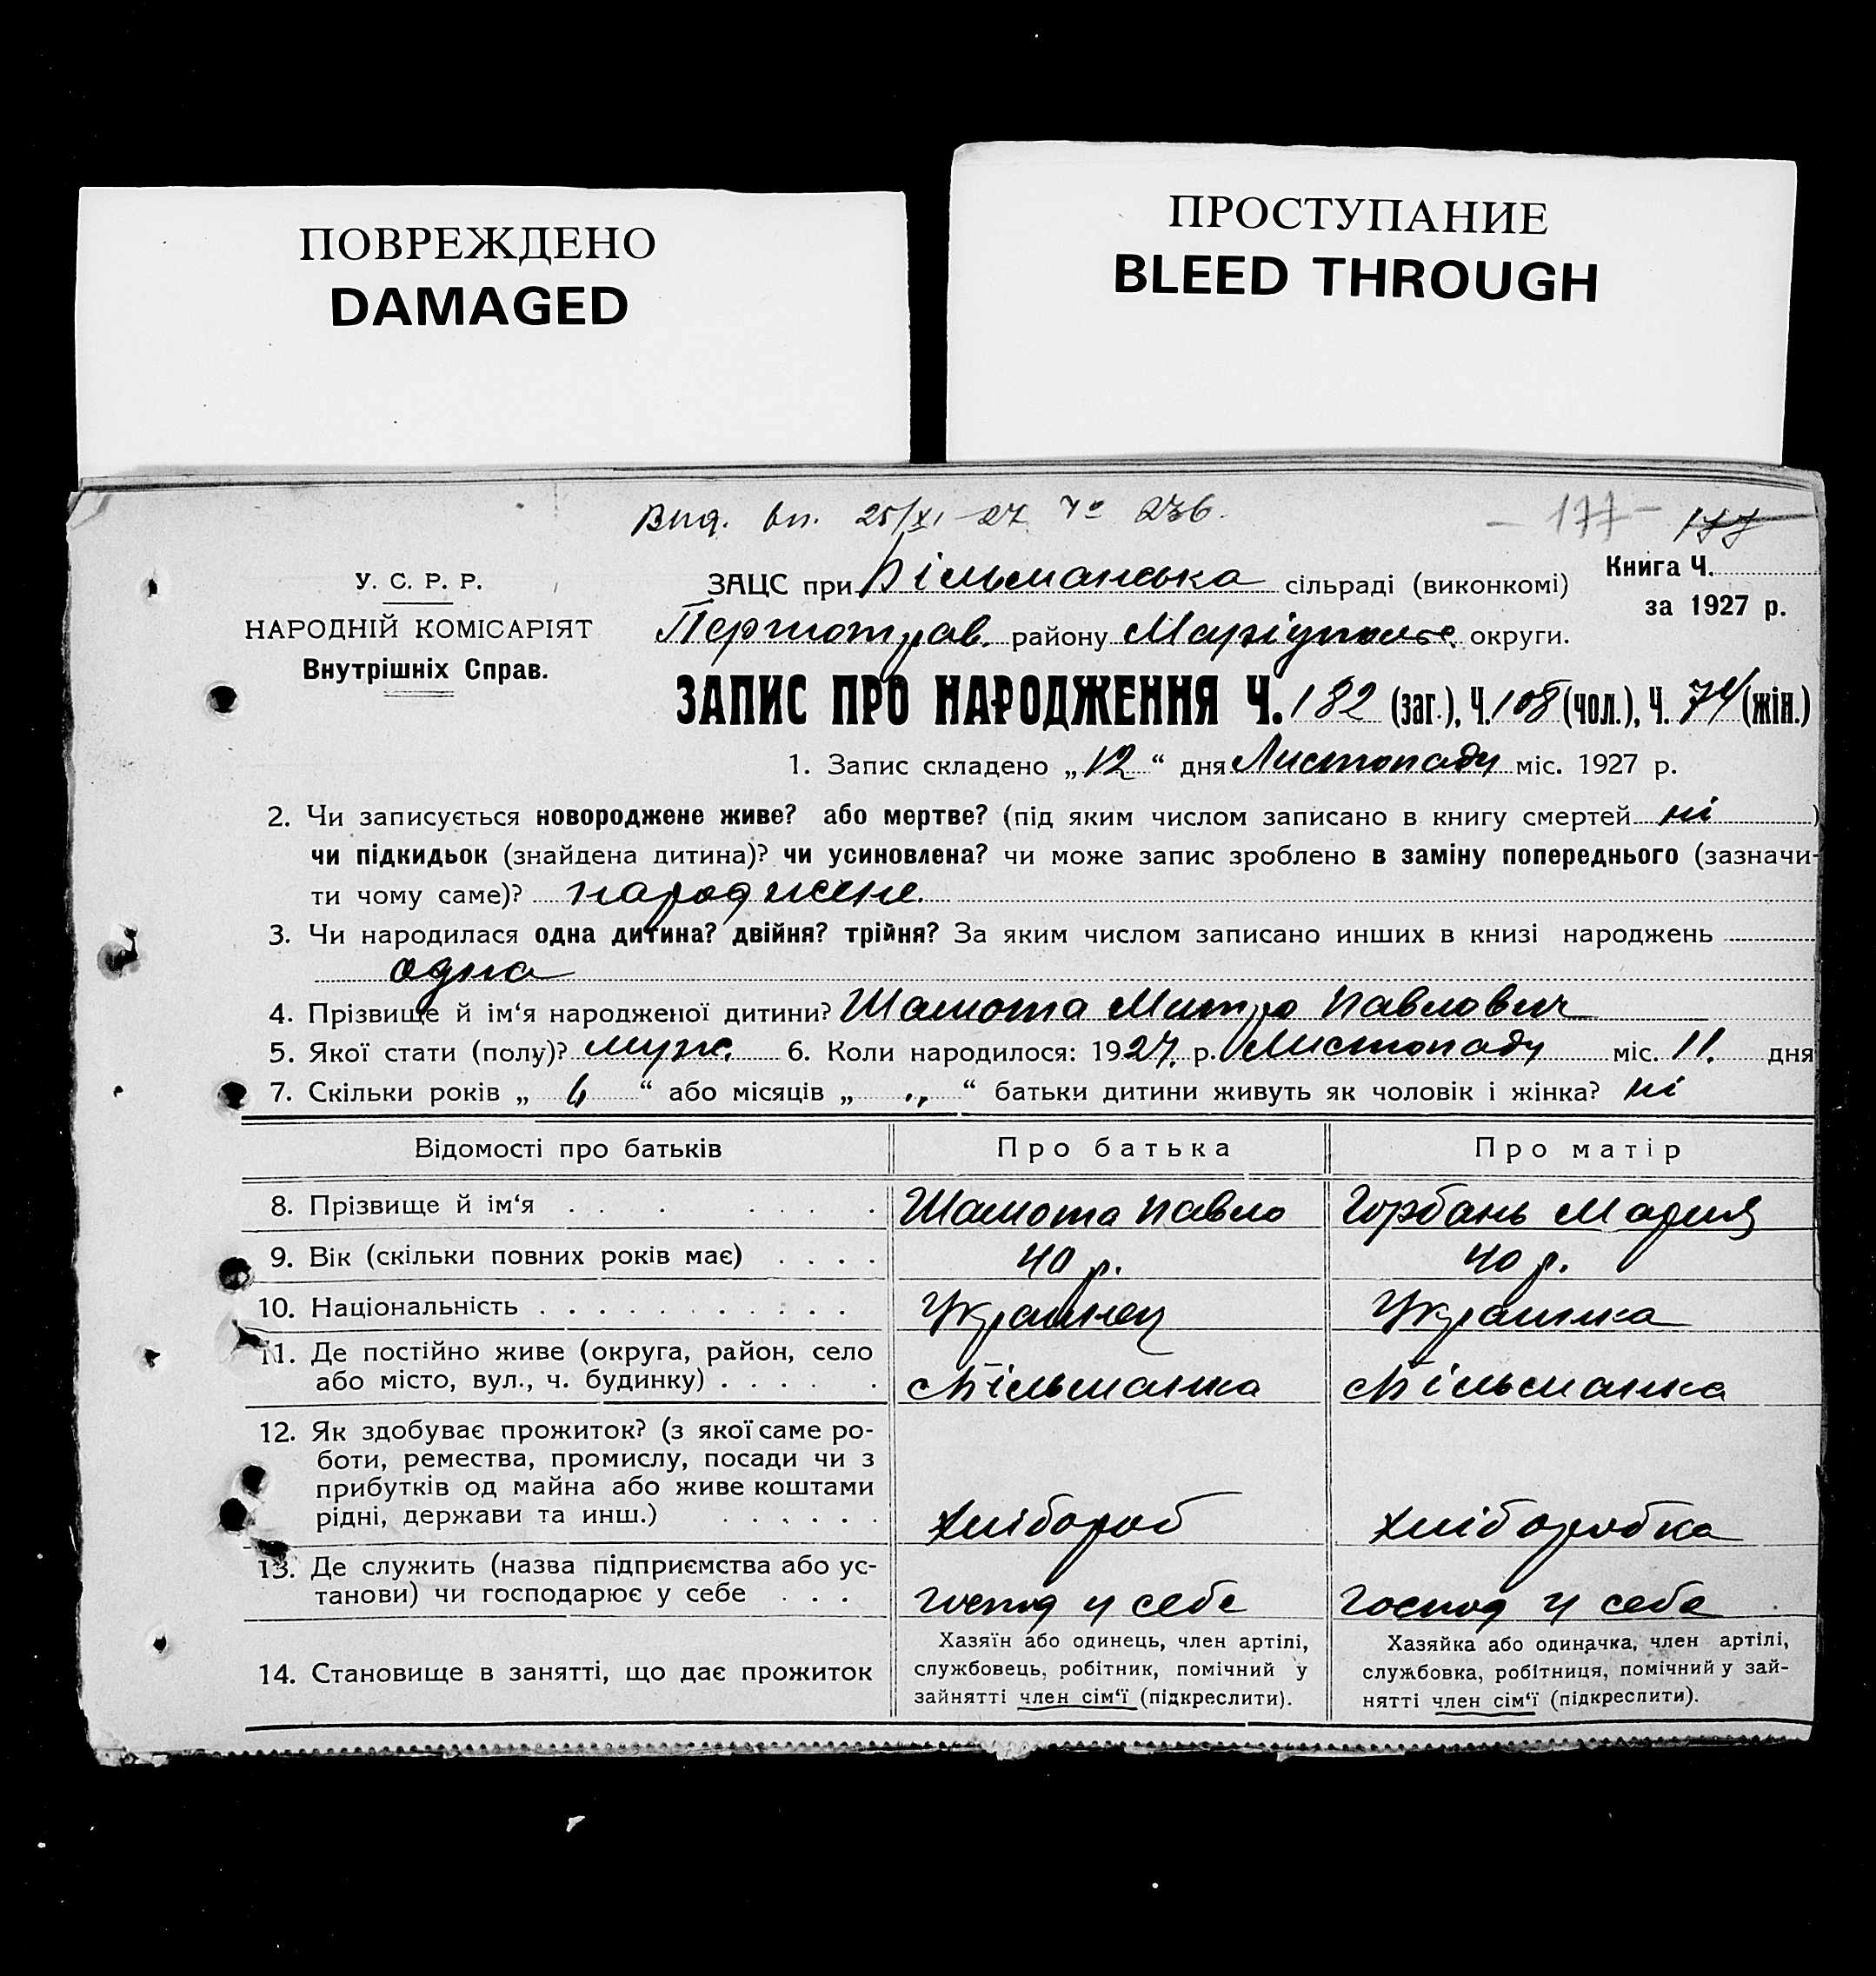 ПОВРЕЖДЕНО
DAMAGED
ПРОСТУПАНИЕ
BLEED THROUGH
вп. 25/XI 27 № 236.
- 177 - 177
У. С. Р. Р.
НАРОДНІЙ КОМІСАРІЯТ
Внутрішніх Справ.
ЗАЦС при Більманська сільраді (виконкомі)
Книга Ч.
за 1927 р.
району Маріупольс. округи.
ЗАПИС ПРО НАРОДЖЕННЯ Ч. 182 (заг.), Ч. 108 (чол.), Ч. 74 (жін.)
1. Запис складено „ 12 “ дня Листопаду міс. 1927 р.
2. Чи записується новороджене живе? або мертве? (під яким числом записано в книгу смертей ні )
чи підкидьок (знайдена дитина)? чи усиновлена? чи може запис зроблено в заміну попереднього (зазначи-
ти чому саме)? народжене.
3. Чи народилася одна дитина? двійня? трійня? За яким числом записано инших в книзі народжень
одна
4. Прізвище й ім‘я народженої дитини? Шамота Митро Павлович
5. Якої стати (полу)? муж. 6. Коли народилося: 1927. р. Листопаду міс. 11. дня
7. Скільки років „ “ або місяців „ „ “ батьки дитини живуть як чоловік і жінка? ні
Відомості про батьків Про батька Про матір
8. Прізвище й ім‘я . . . . . . . Шамота Павло Горбань Мария
9. Вік (скільки повних років має) . . . . 40 р. 40 р.
10. Національність . . . . . . . . . . . Украинец Украинка
11. Де постійно живе (округа, район, село
або місто, вул., ч. будинку) . . . . . Більманка Більманка
12. Як здобуває прожиток? (з якої саме ро-
боти, ремества, промислу, посади чи з
прибутків од майна або живе коштами
рідні, держави та инш.) . . . . . . Хлібороб Хліборобка
13. Де служить (назва підприємства або ус-
танови) чи господарює у себе . . . Господ у себе Господ у себе
14. Становище в занятті, що дає прожиток
Хазяїн або одинець, член артілі,
службовець, робітник, помічний у
зайнятті член сім‘ї (підкреслити).
Хазяйка або одиначка, член артілі,
службовка, робітниця, помічний у зай-
нятті член сім‘ї (підкреслити).